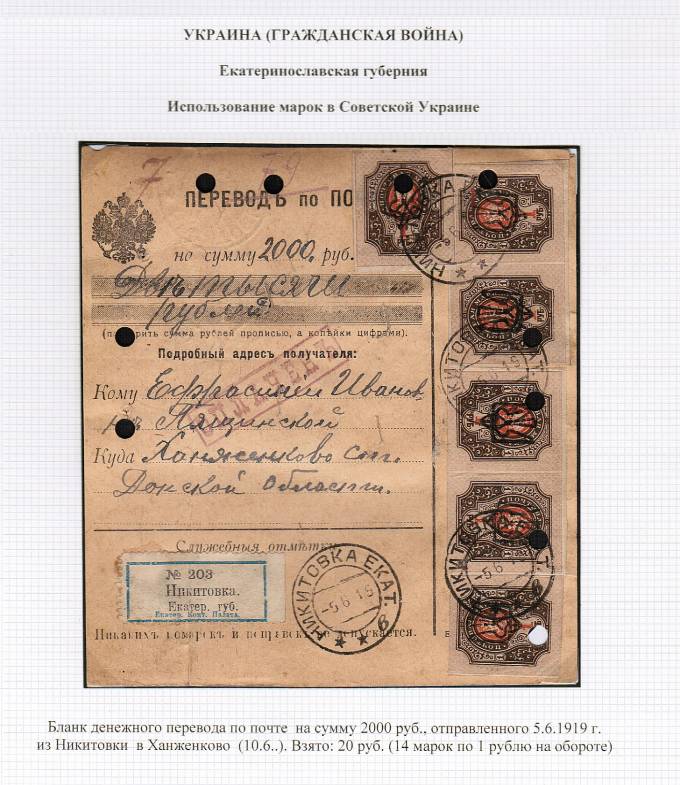 УКРАИНА (ГРАЖДАНСКАЯ ВОЙНА)
Екатеринославская губерния
Использование марок в Советской Украине
7 79
ПЕРЕВОДЪ по ПО
на сумму 2000, руб.
Двѣ тысячи
рублей
сумма рублей прописью, а копѣйки цифрами).
Подробный адресъ получателя:
Кому Ефросиніи Иванов
нѣ Пящинской
Куда Ханженково ст.
Донской области.
Служебныя отмѣтки
№ 203
Никитовка.
Екатер. губ.
Екатер. Конт. Палата.
НИКИТОВКА ЕКАТ.
-5 6 19
НИКИТОВКА ЕКАТ.
-5 6
Никакихъ помарокъ и допускается.
РУБ
Бланк денежного перевода по почте на сумму 2000 руб., отправленного 5.6.1919 г.
из Никитовки в Ханженково (10.6..). Взято: 20 руб. (14 марок по 1 рублю на обороте)